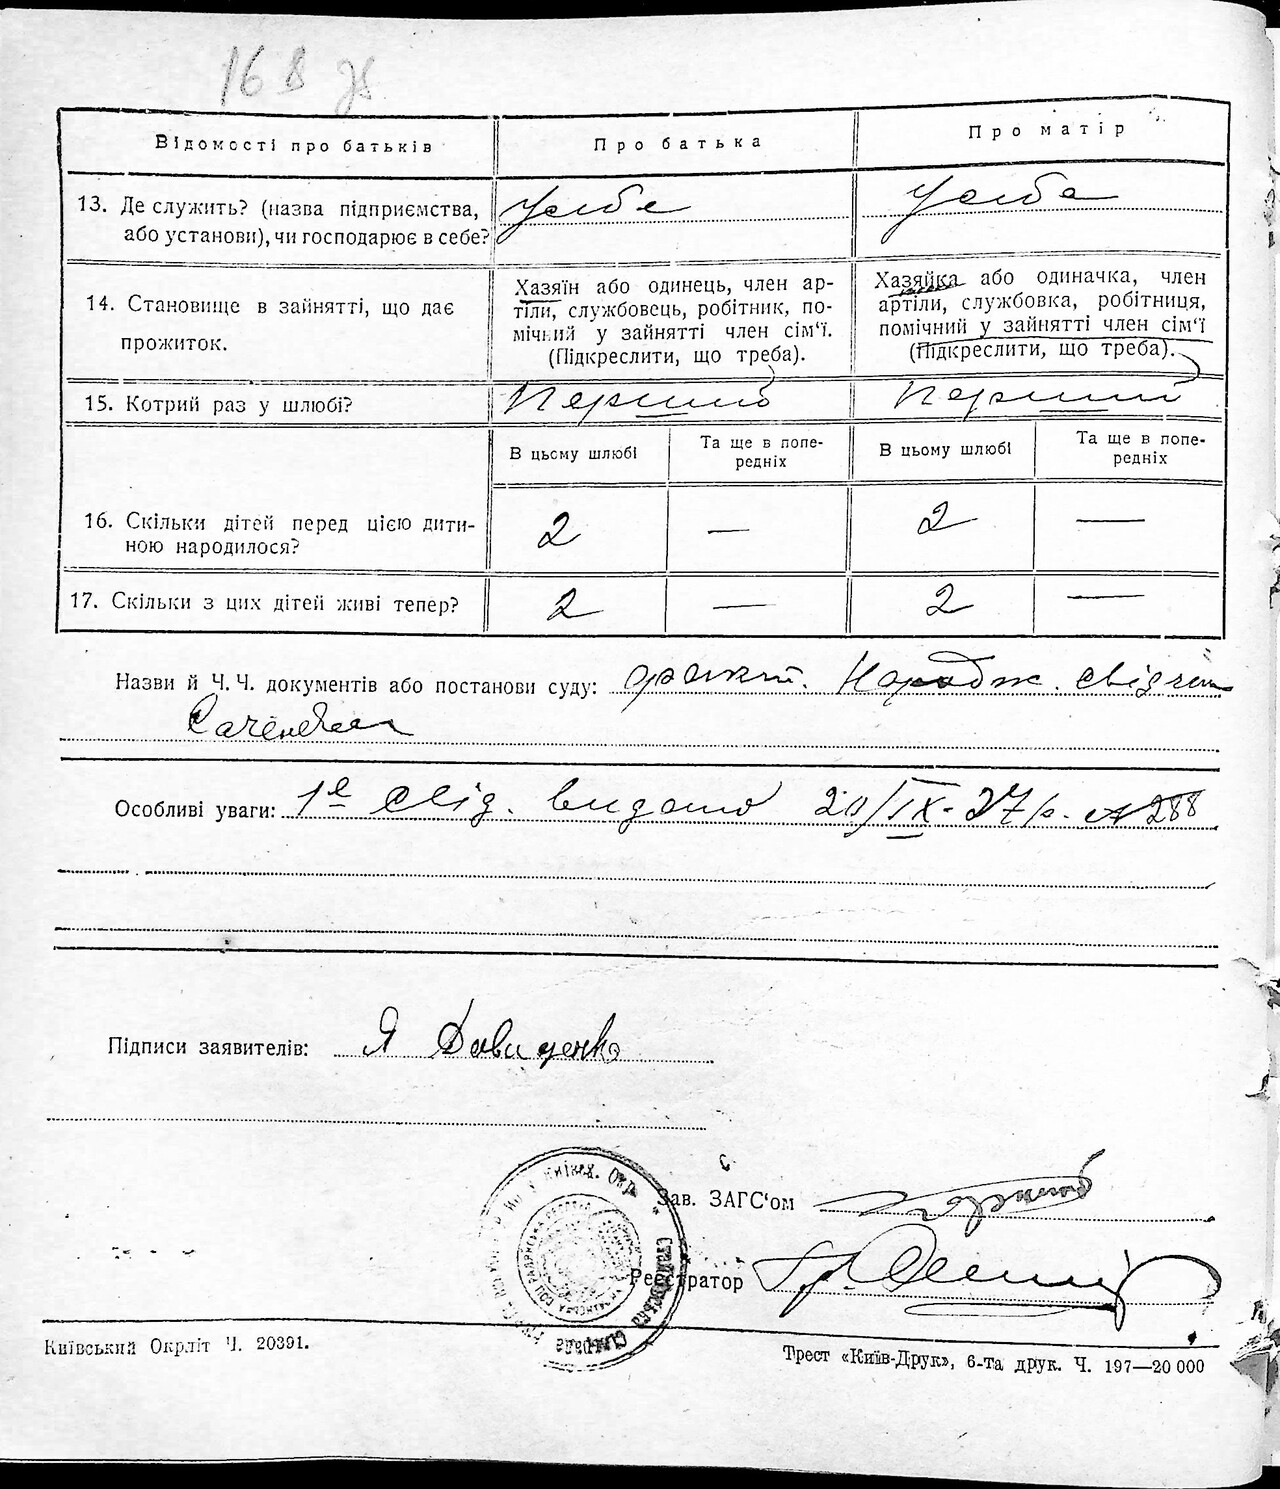 168 зв
Відомості про батьків
Про батька
Про матір
13. Де служить? (назва підприємства, або установи), чи господарює в себе?
У себе
У себе
14. Становище в зайнятті, що дає прожиток.
Хазяїн або одинець, член ар-
тіли, службовець, робітник, по-
мічний у зайнятті член сім'ї.
(Підкреслити, що треба).
Хазяйка або одиначка, член
артіли, службовка, робітниця,
помічний у зайнятті член сім'ї
(Підкреслити, що треба).
15. Котрий раз у шлюбі?
Перший
Перший
В цьому шлюбі
Та ще в попе-
редніх
В цьому шлюбі
Та ще в попе-
редніх
16. Скільки дітей перед цією дити-
ною народилося?
2 — 2 —
17. Скільки з цих дітей живі тепер?
2 — 2 —
Назви й Ч. Ч. документів або постанови суду: Народж. свідч
Особливі уваги: 1е свід. видано 20/IX-27р. № 288
Підписи заявителів: Я Давиденко
Зав. ЗАГС'ом
Реєстратор
Київський Окрліт Ч. 20391.
Трест «Київ-Друк», 6-та друк. Ч. 197—20 000